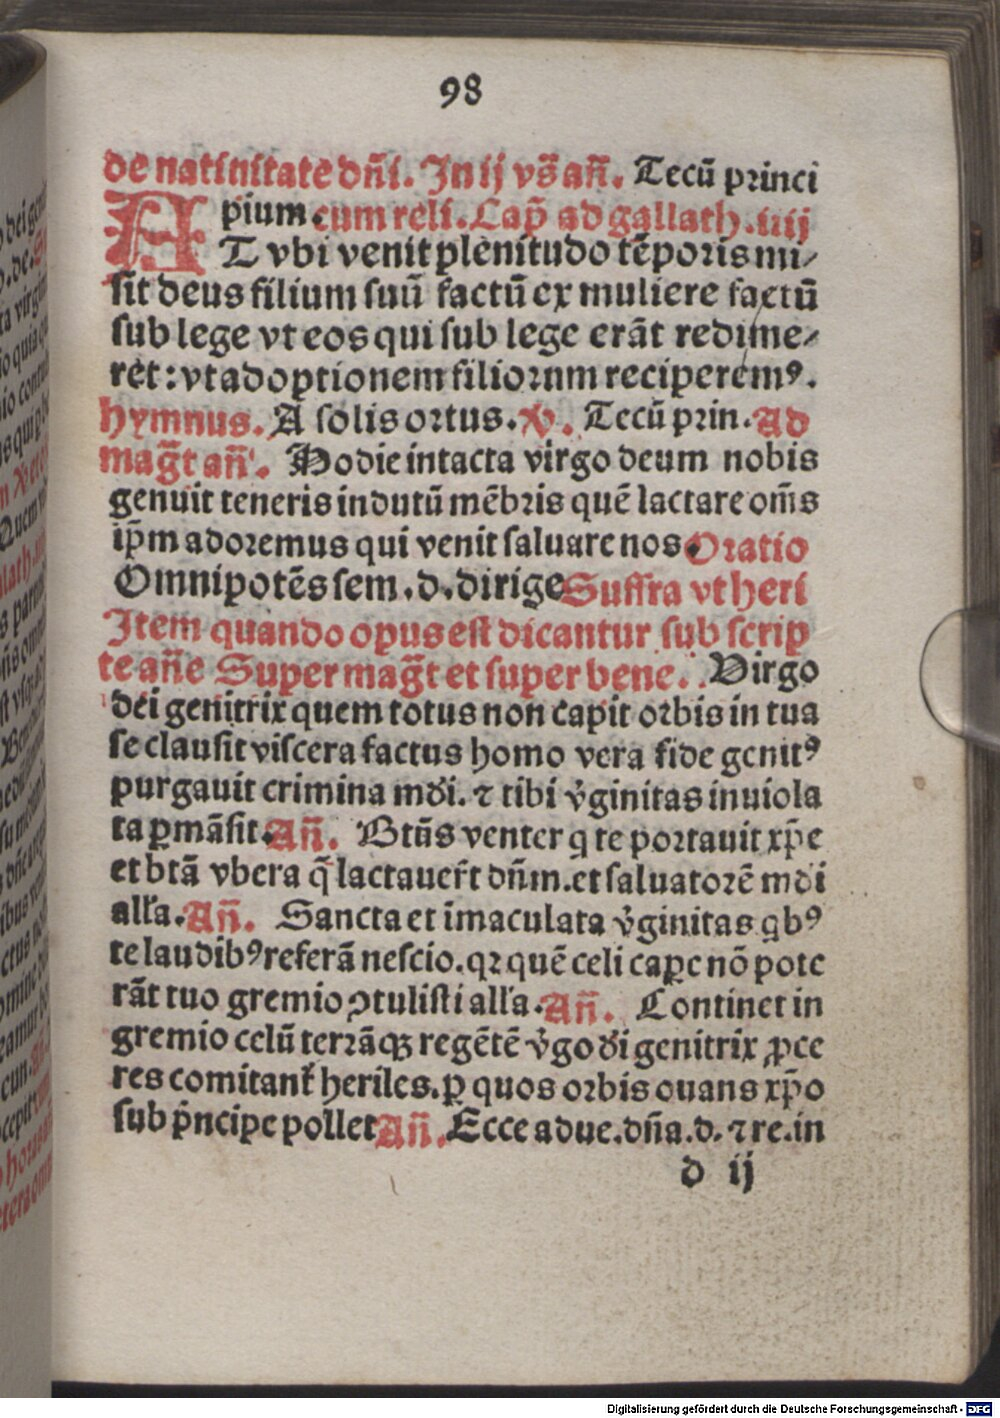 98
de natiuitate dn̄i. In ij vs̄ an̄. Tecū princi
pium. cum reli. Cap̄ ad gallath. iiij
AT vbi venit plenitudo tēporis mi⸗
sit deus filium suū factū ex muliere factū
sub lege vt eos qui sub lege erāt redime⸗
rēt : vt adoptionem filiorum reciperemꝰ.
hymnus. A solis ortus. V. Tecū prin. Ad
mag̅t an̄. Hodie intacta virgo deum nobis
genuit teneris indutū mēbris quē lactare om̄s
ip̄m adoremus qui venit saluare nos. Oratio
Omnipotēs sem. d. dirige Suffra vt heri
Item quando opus est dicantur sub scrip
te an̄e Super mag̅t et super bene. Virgo
dei genitrix quem totus non capit orbis in tua
se clausit viscera factus homo vera fide genitꝰ
purgauit crimina mūdi. ⁊ tibi v̓ginitas inuiola
ta ꝑmāsit. An̄. Btūs venter q te portauit xp̄e
et btā vbera q̄ lactauer̄t dn̄m. et saluatorē mūdi
alľa. An̄. Sancta et īmaculata v̓ginitas qbꝰ
te laudibꝰ referā nescio. qꝛ quē celi capeꝛe nō pote
rāt tuo gremio ↄtulisti alľa. An̄. Continet in
gremio celū terrāqꝫ regētē v̓go d̓i genitrix ꝓce
res comitant̄ heriles. ꝑ quos orbis ouans xp̄o
sub p̄ncipe pollet An̄. Ecce adue. dn̄a. d. ⁊ re. in
d ij
Digitalisierung gefördert durch die Deutsche Forschungsgemeinschaft - DFG